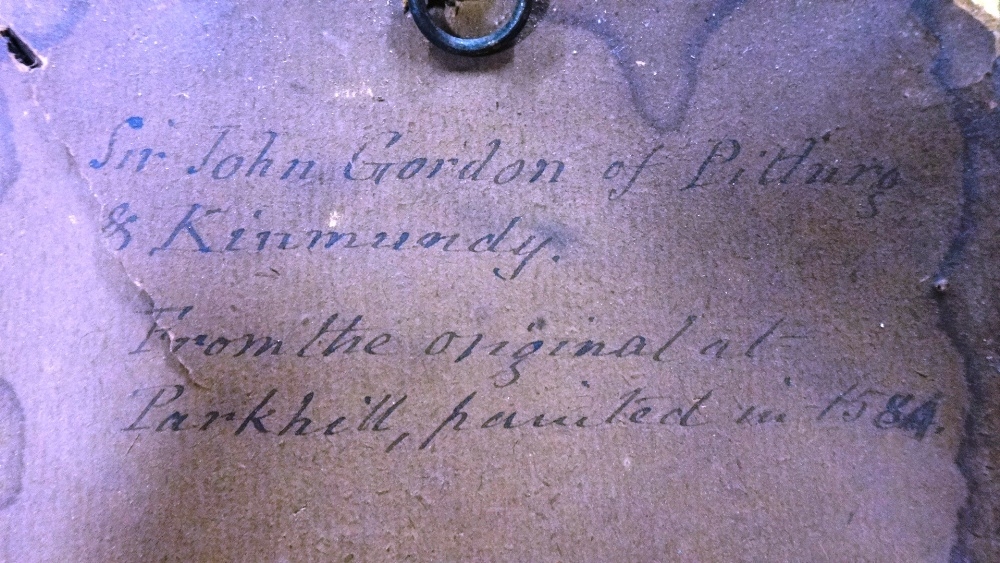 Sir John Gordon of Pitlurg
& Kinmundy.
From the original at
Parkhill, painted in 1584.